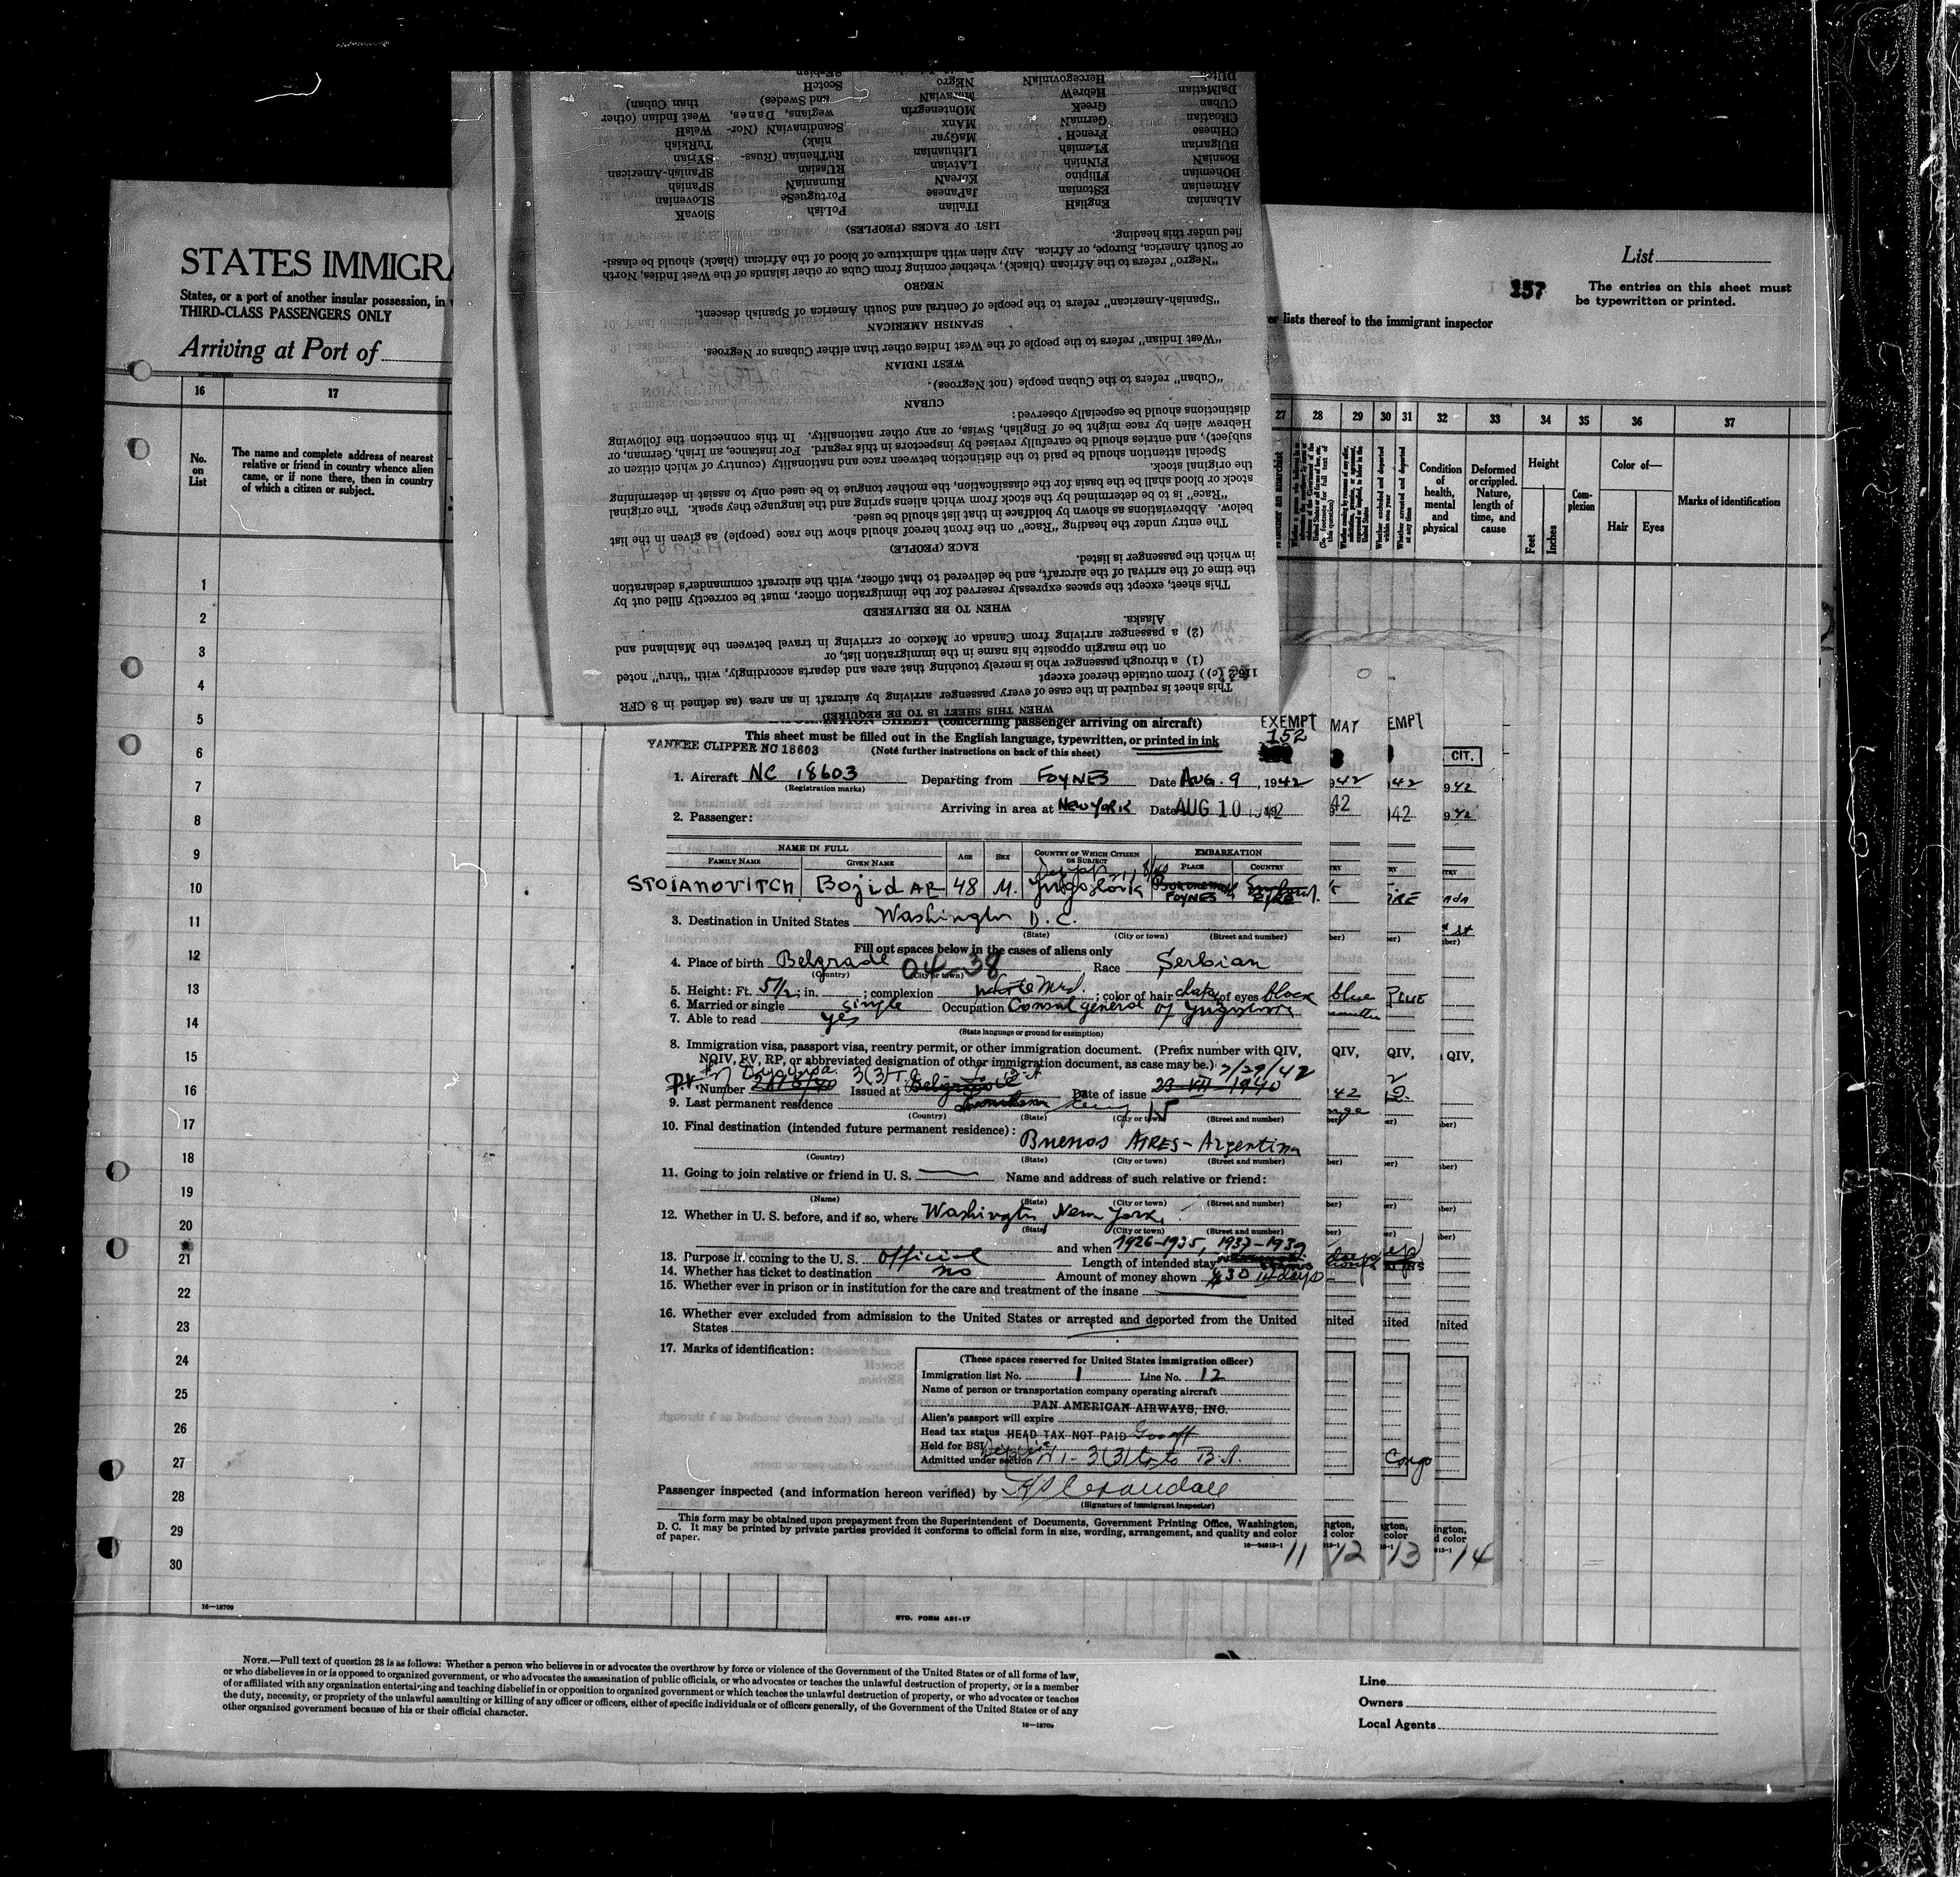 STATES IMMIGRA
States, or a port of another insular possession, in
THIRD-CLASS PASSENGERS ONLY
Arriving at Port of
List
257
The entries on this sheet must
be typewritten or printed.
lists thereof to the immigrant inspector
16 17 27 28 29 30 31 32 33 34 35 36 37
No. on List
The name and complete address of nearest
relative or friend in country whence alien
came, or if none there, then in country
of which a citizen or subject.
Whether excluded and deported within one year
Whether arrested and deported at any time
Condition of health, mental and physical
Deformed or crippled. Nature, length of time, and cause
Height
Feet Inches
Complexion
Color of—
Hair Eyes
Marks of identification
1
2
3
4
5
6
7
8
9
10
11
12
13
14
15
16
17
18
19
20
21
22
23
24
25
26
27
28
29
30
WHEN THIS SHEET IS TO BE REQUIRED
This sheet is required in the case of every passenger arriving by aircraft in an area (as defined in 8 CFR
116.2 (c)) from outside thereof except
(1) a through passenger who is merely touching that area and departs accordingly, with "thru" noted
on the margin opposite his name in the immigration list, or
(2) a passenger arriving from Canada or Mexico or arriving in travel between the Mainland and
Alaska.
WHEN TO BE DELIVERED
This sheet, except the spaces expressly reserved for the immigration officer, must be correctly filled out by
the time of the arrival of the aircraft, and be delivered to that officer, with the aircraft commander's declaration
in which the passenger is listed.
RACE (PEOPLE)
The entry under the heading "Race" on the front hereof should show the race (people) as given in the list
below. Abbreviations as shown by boldface in that list should be used.
"Race" is to be determined by the stock from which aliens spring and the language they speak. The original
stock or blood shall be the basis for the classification, the mother tongue to be used only to assist in determining
the original stock.
Special attention should be paid to the distinction between race and nationality (country of which citizen or
subject), and entries should be carefully revised by inspectors in this regard. For instance, an Irish, German, or
Hebrew alien by race might be of English, Swiss, or any other nationality. In this connection the following
distinctions should be especially observed:
CUBAN
"Cuban" refers to the Cuban people (not Negroes).
WEST INDIAN
"West Indian" refers to the people of the West Indies other than either Cubans or Negroes.
SPANISH AMERICAN
"Spanish-American" refers to the people of Central and South America of Spanish descent.
NEGRO
"Negro" refers to the African (black), whether coming from Cuba or other islands of the West Indies, North
or South America, Europe, or Africa. Any alien with admixture of blood of the African (black) should be classi-
fied under this heading.
LIST OF RACES (PEOPLES)
Albanian EnglisH ITalian PoLish SlovaK
ARmenian EStonian JaPanese PortugueSe SLOvenian
BOhemian Filipino KoreaN RumaniaN SPanish
BosniaN FiNnish LATvian RUSsian SPanish-American
BUlgarian FLemish LIthuanian RuThenian (Russ- SYrian
CHinese FrencH MaGyar niak) TuRkish
CRoatian GermaN MAnx ScandinaviaN (Nor- WelsH
CUban GreeK MOntenegrin wegians, Danes, West Indian (other
DalMatian HebreW MoraviaN and Swedes) than Cuban)
DUtch HercegoviniaN NEgro ScotcH
SErbian
INFORMATION SHEET (concerning passenger arriving on aircraft)
This sheet must be filled out in the English language, typewritten, or printed in ink
YANKEE CLIPPER NC 18603
(Note further instructions on back of this sheet)
EXEMPT
152
EMPT
CIT.
1. Aircraft NC 18603 Departing from FOYNES Date AUG. 9, 1942
(Registration marks)
Arriving in area at NEW YORK Date AUG 10 1942
2. Passenger:
NAME IN FULL
FAMILY NAME GIVEN NAME AGE SEX COUNTRY OF WHICH CITIZEN OR SUBJECT EMBARKATION
PLACE COUNTRY
STOIANOVITCH BOJIDAR 48 M. Yugoslavia FOYNES EIRE
3. Destination in United States Washington D.C.
(State) (City or town) (Street and number)
Fill out spaces below in the cases of aliens only
4. Place of birth Belgrade Race Serbian
(Country) (City or town)
04-38
5. Height: Ft. 5 1/2; in. ; complexion ; color of hair of eyes black
6. Married or single single Occupation Consul general of Yugoslavia
7. Able to read yes
(State language or ground for exemption)
8. Immigration visa, passport visa, reentry permit, or other immigration document. (Prefix number with QIV,
NQIV, PV, RP, or abbreviated designation of other immigration document, as case may be.) 7/29/42
P.V. Number Issued at Belgrade Date of issue 23-VII-1940
9. Last permanent residence
(Country) (State) (City or town) (Street and number)
10. Final destination (intended future permanent residence):
Buenos AIRES - Argentina
(Country) (State) (City or town) (Street and number)
11. Going to join relative or friend in U. S. Name and address of such relative or friend:
(Name) (State) (City or town) (Street and number)
12. Whether in U. S. before, and if so, where Washington, New York,
(State) (City or town) (Street and number)
and when 1926-1935, 1937-1939
13. Purpose in coming to the U. S. Official Length of intended stay
14. Whether has ticket to destination no Amount of money shown $30 14 days
15. Whether ever in prison or in institution for the care and treatment of the insane
16. Whether ever excluded from admission to the United States or arrested and deported from the United
States
17. Marks of identification:
(These spaces reserved for United States immigration officer)
Immigration list No. 1 Line No. 12
Name of person or transportation company operating aircraft
PAN AMERICAN AIRWAYS, INC.
Alien's passport will expire
Head tax status HEAD TAX NOT PAID
Held for BSI
Admitted under section
Passenger inspected (and information hereon verified) by
(Signature of immigrant inspector)
This form may be obtained upon prepayment from the Superintendent of Documents, Government Printing Office, Washington,
D. C. It may be printed by private parties provided it conforms to official form in size, wording, arrangement, and quality and color
of paper.
11 12 13 14
blue BLUE
QIV, QIV, QIV,
Congo
16—18709
STD. FORM A81-17
NOTE.—Full text of question 28 is as follows: Whether a person who believes in or advocates the overthrow by force or violence of the Government of the United States or of all forms of law,
or who disbelieves in or is opposed to organized government, or who advocates the assassination of public officials, or who advocates or teaches the unlawful destruction of property, or is a member
of or affiliated with any organization entertaining and teaching disbelief in or opposition to organized government or which teaches the unlawful destruction of property, or who advocates or teaches
the duty, necessity, or propriety of the unlawful assaulting or killing of any officer or officers, either of specific individuals or of officers generally, of the Government of the United States or of any
other organized government because of his or their official character.
16—18709
Line
Owners
Local Agents